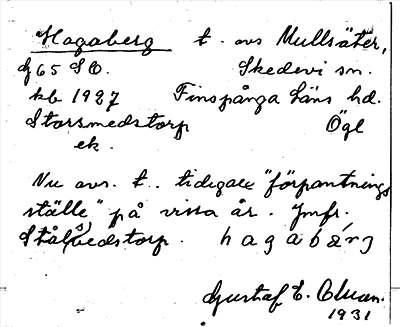 Hagaberg t. avs Mullsäter,
df 65 SO. Skedevi sn.
kb 1927 Finspånga läns hd.
Storsmedstorp Ögl
ek.
Nu avs. t. tidigare "förpantnings
ställe" på vissa år. Jmfr.
Stålbedstorp. hagabärj
Gustaf E.
1931